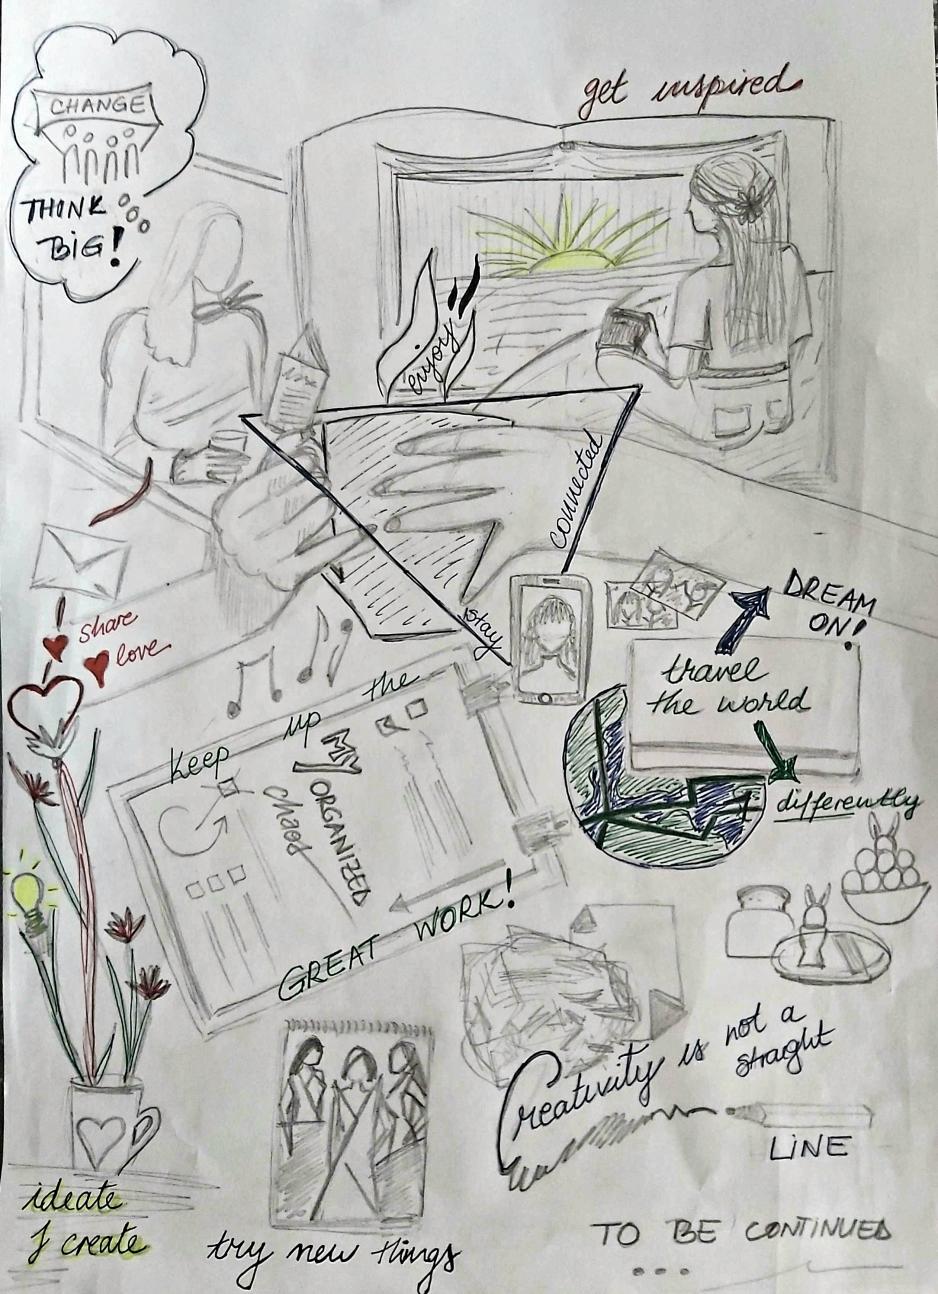 get inspired
CHANGE
THINK
BiG!
enjoy
connected
stay
share
love
DREAM
ON!
travel
the world
differently
Keep up the
MY
ORGANIZED
chaos
GREAT WORK!
Creativity is not a
straght
LiNE
ideate
& create
try new things
TO BE CONTINUED
...